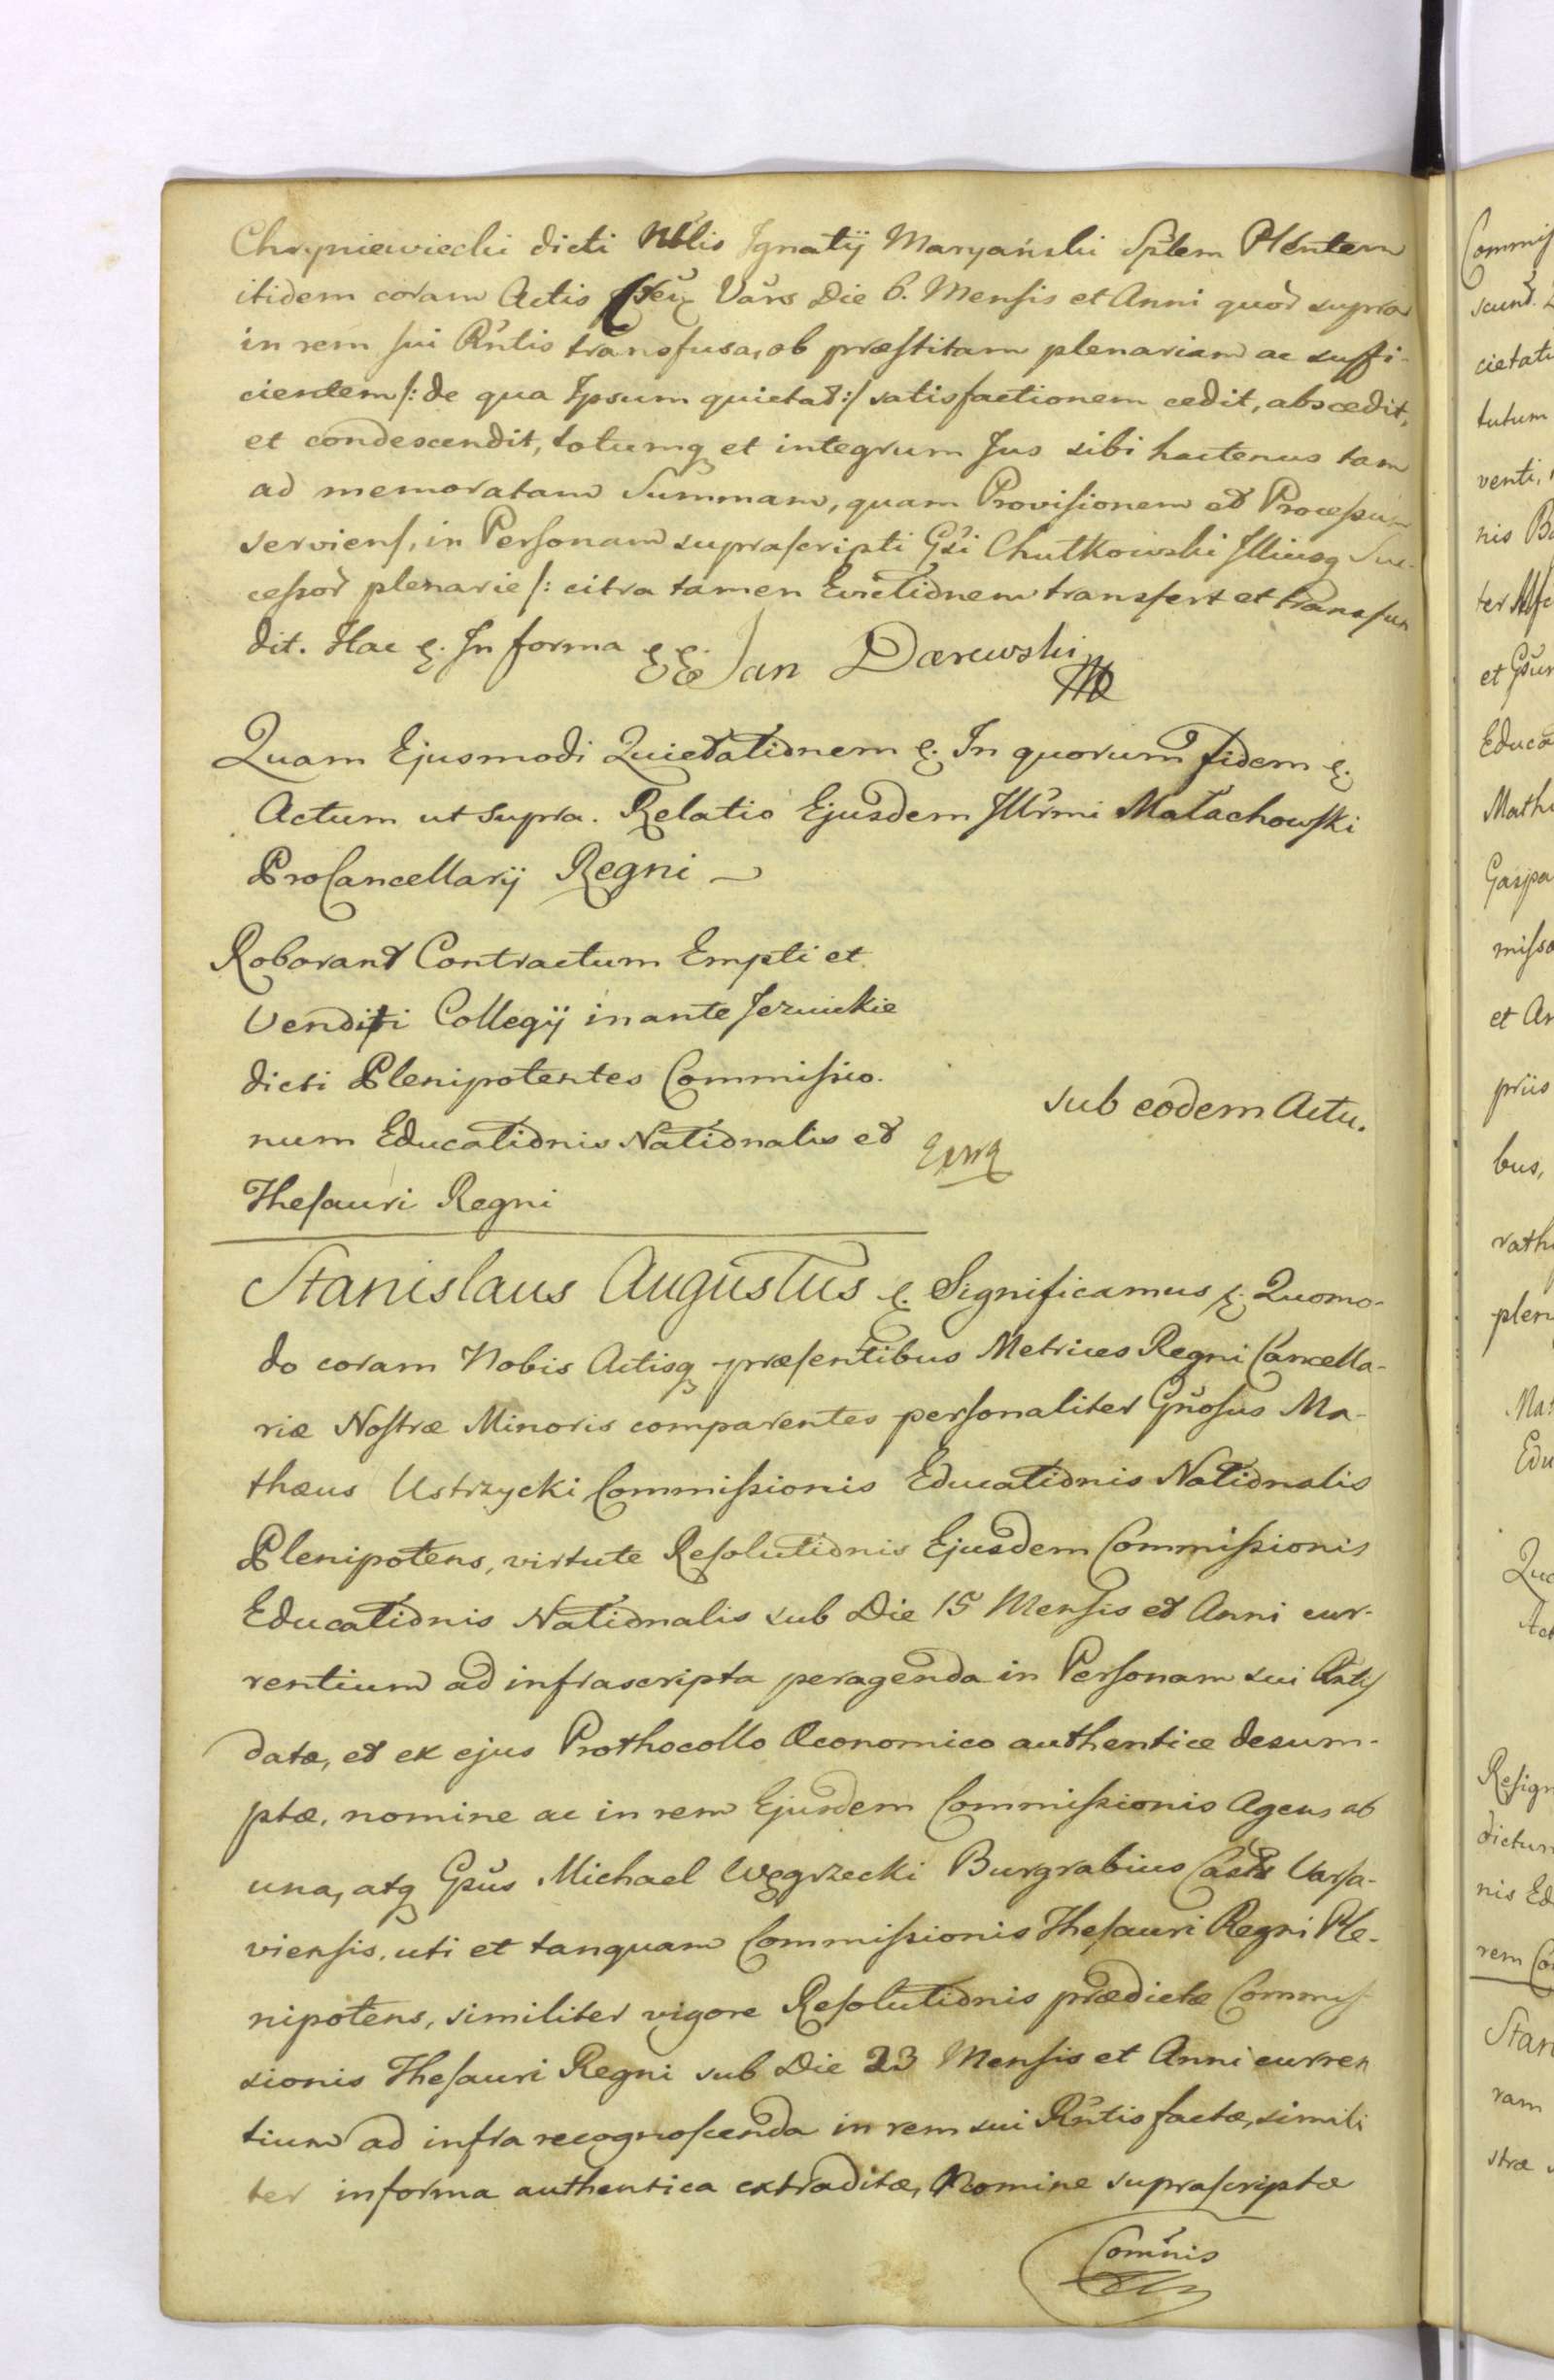 Chrypniewiecki dicti Nblis Ignatij Maryański Spłem Plentem
itidem coram Actis Vars Die 6. Mensis et Anni quor supra
in rem sui Rntis transfusa, ob præstitam plenariam ac suffi-
cientem /: de qua Ipsum quietat :/ satisfactionem cedit, abscedit,
et condescendit, totumq et integrum Jus sibi hactenus tam
ad memoratam Summam, quam Provisionem et Processum
serviens, in Personam suprascripti Gsi Chutkowski Illiusq Suc-
cessor plenarie /: citra tamen Evictionem transfert et transfun
dit. Hac &. In forma && Jan Darewski
Quam Ejusmodi Quietationem &. In quorum fidem &.
Actum ut supra. Relatio Ejusdem Illrmi Małachowski
ProCancellarij Regni
Roborant Contractum Empti et
Venditi Collegij in ante Jezuickie
dicti Plenipotentes Commissio-
num Educationis Nationalis et
Thesauri Regni
sub eodem Actu.
Stanislaus Augustus &. Significamus &. Quomo-
do coram Nobis Actisq præsentibus Metrices Regni Cancella-
riæ Nostræ Minoris comparentes personaliter Gnosus Ma-
thæus Ustrzycki Commissionis Educationis Nationalis
Plenipotens, virtute Resolutionis Ejusdem Commissionis
Educationis Nationalis sub Die 15 Mensis et Anni cur-
rentium ad infrascripta peragenda in Personam sui Rntis
datæ, et ex ejus Prothocollo Œconomico authentice desum-
ptæ, nomine ac in rem Ejusdem Commissionis Agens ab
una, atq Gsus Michael Węgrzecki Burgrabius Castr Varsa-
viensis, uti et tanquam Commissionis Thesauri Regni Ple-
nipotens, similiter vigore Resolutionis prædictæ Commis-
sionis Thesauri Regni sub Die 23 Mensis et Anni curren
tium ad infra recognoscenda in rem sui Rntis factæ, simili
ter in forma authentica extraditæ, Nomine suprascriptæ
Comnis